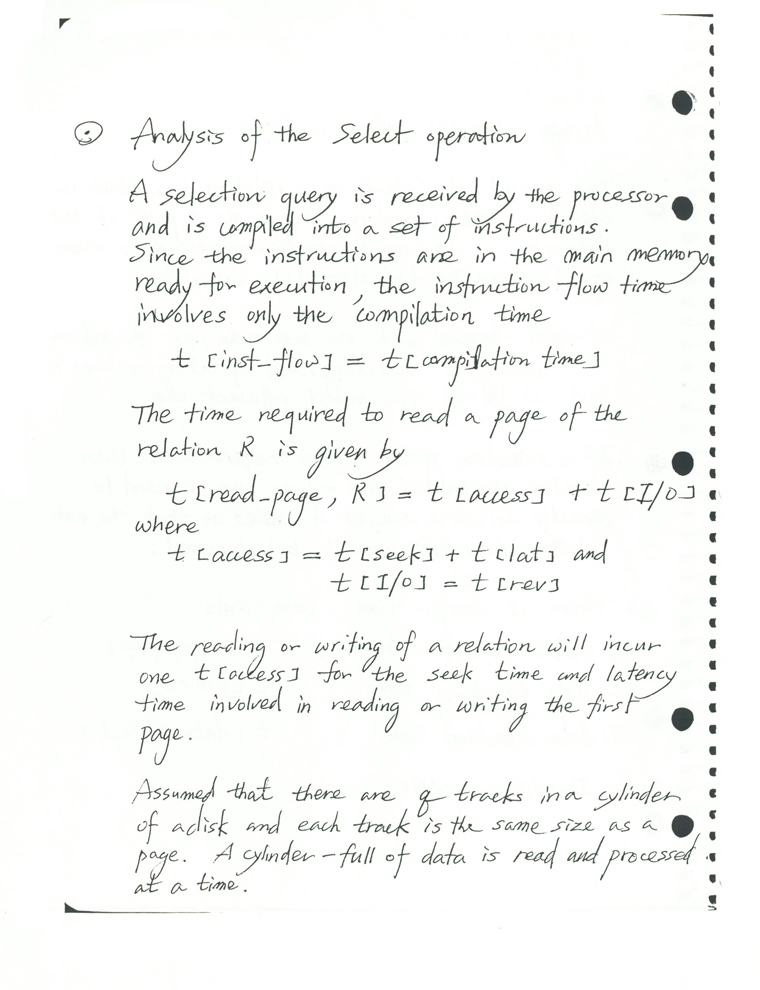 Analysis of the Select operation
A selection query is received by the processor
and is compiled into a set of instructions.
Since the instructions are in the main memory
ready for execution, the instruction flow time
involves only the compilation time
t [inst-flow] = t [compilation time]
The time required to read a page of the
relation R is given by
t [read-page, R] = t [access] + t [I/O]
where
t [access] = t [seek] + t [lat] and
t [I/O] = t [rev]
The reading or writing of a relation will incur
one t [access] for the seek time and latency
time involved in reading or writing the first
page.
Assumed that there are q tracks in a cylinder
of a disk and each track is the same size as a
page. A cylinder-full of data is read and processed
at a time.